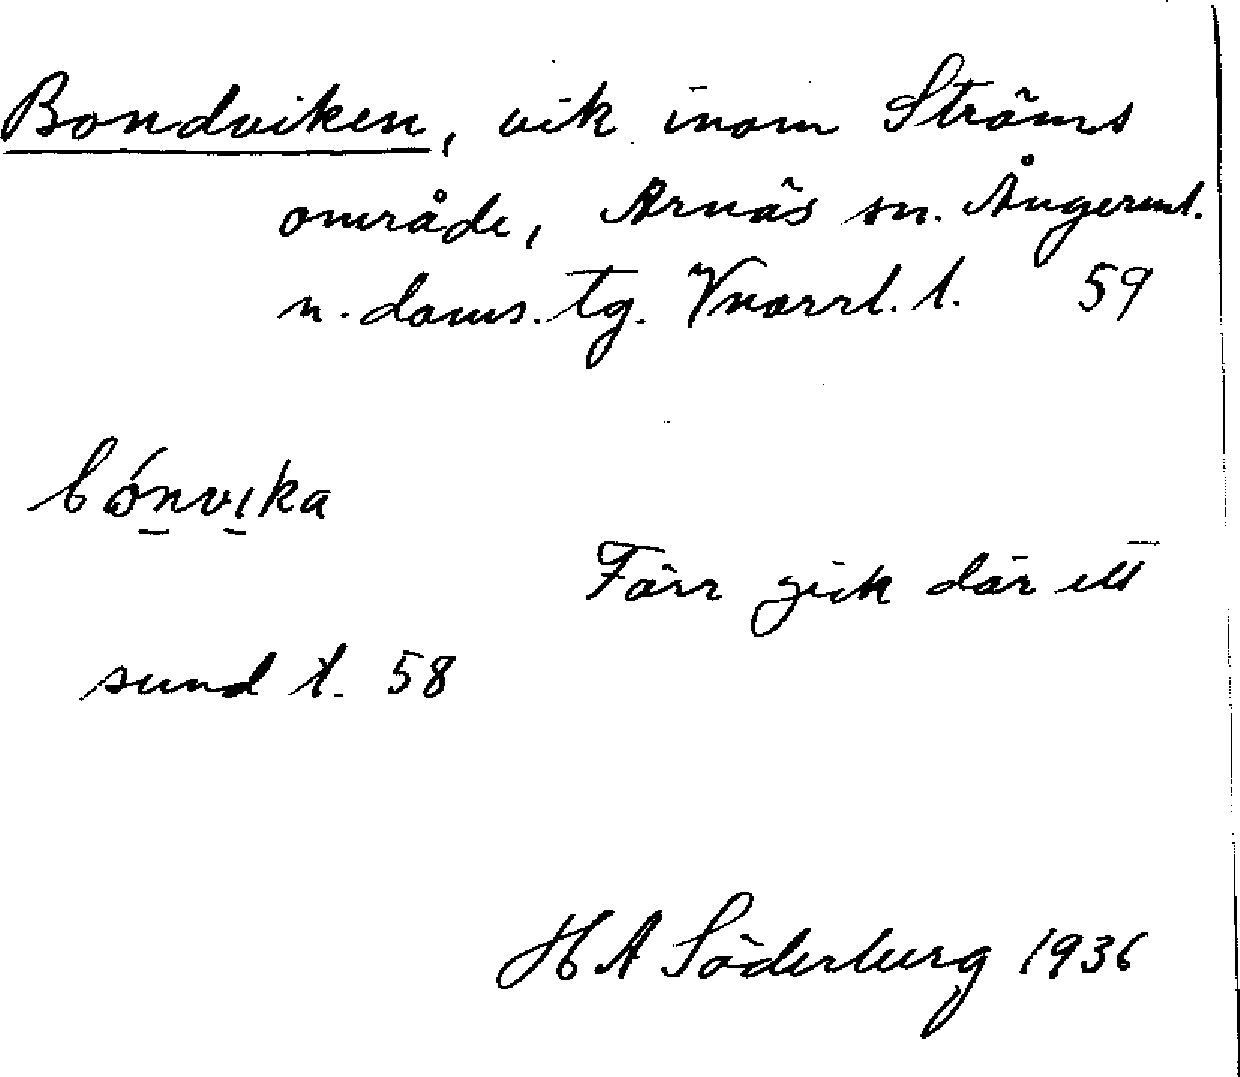 Bondviken, vik inom Ströms
område, Arnäs sn. Ångerml.
n. doms. tg. Vnorrl. l. 59
bónvıka
Förr gick där ett
sund t. 58
H A Söderberg 1936